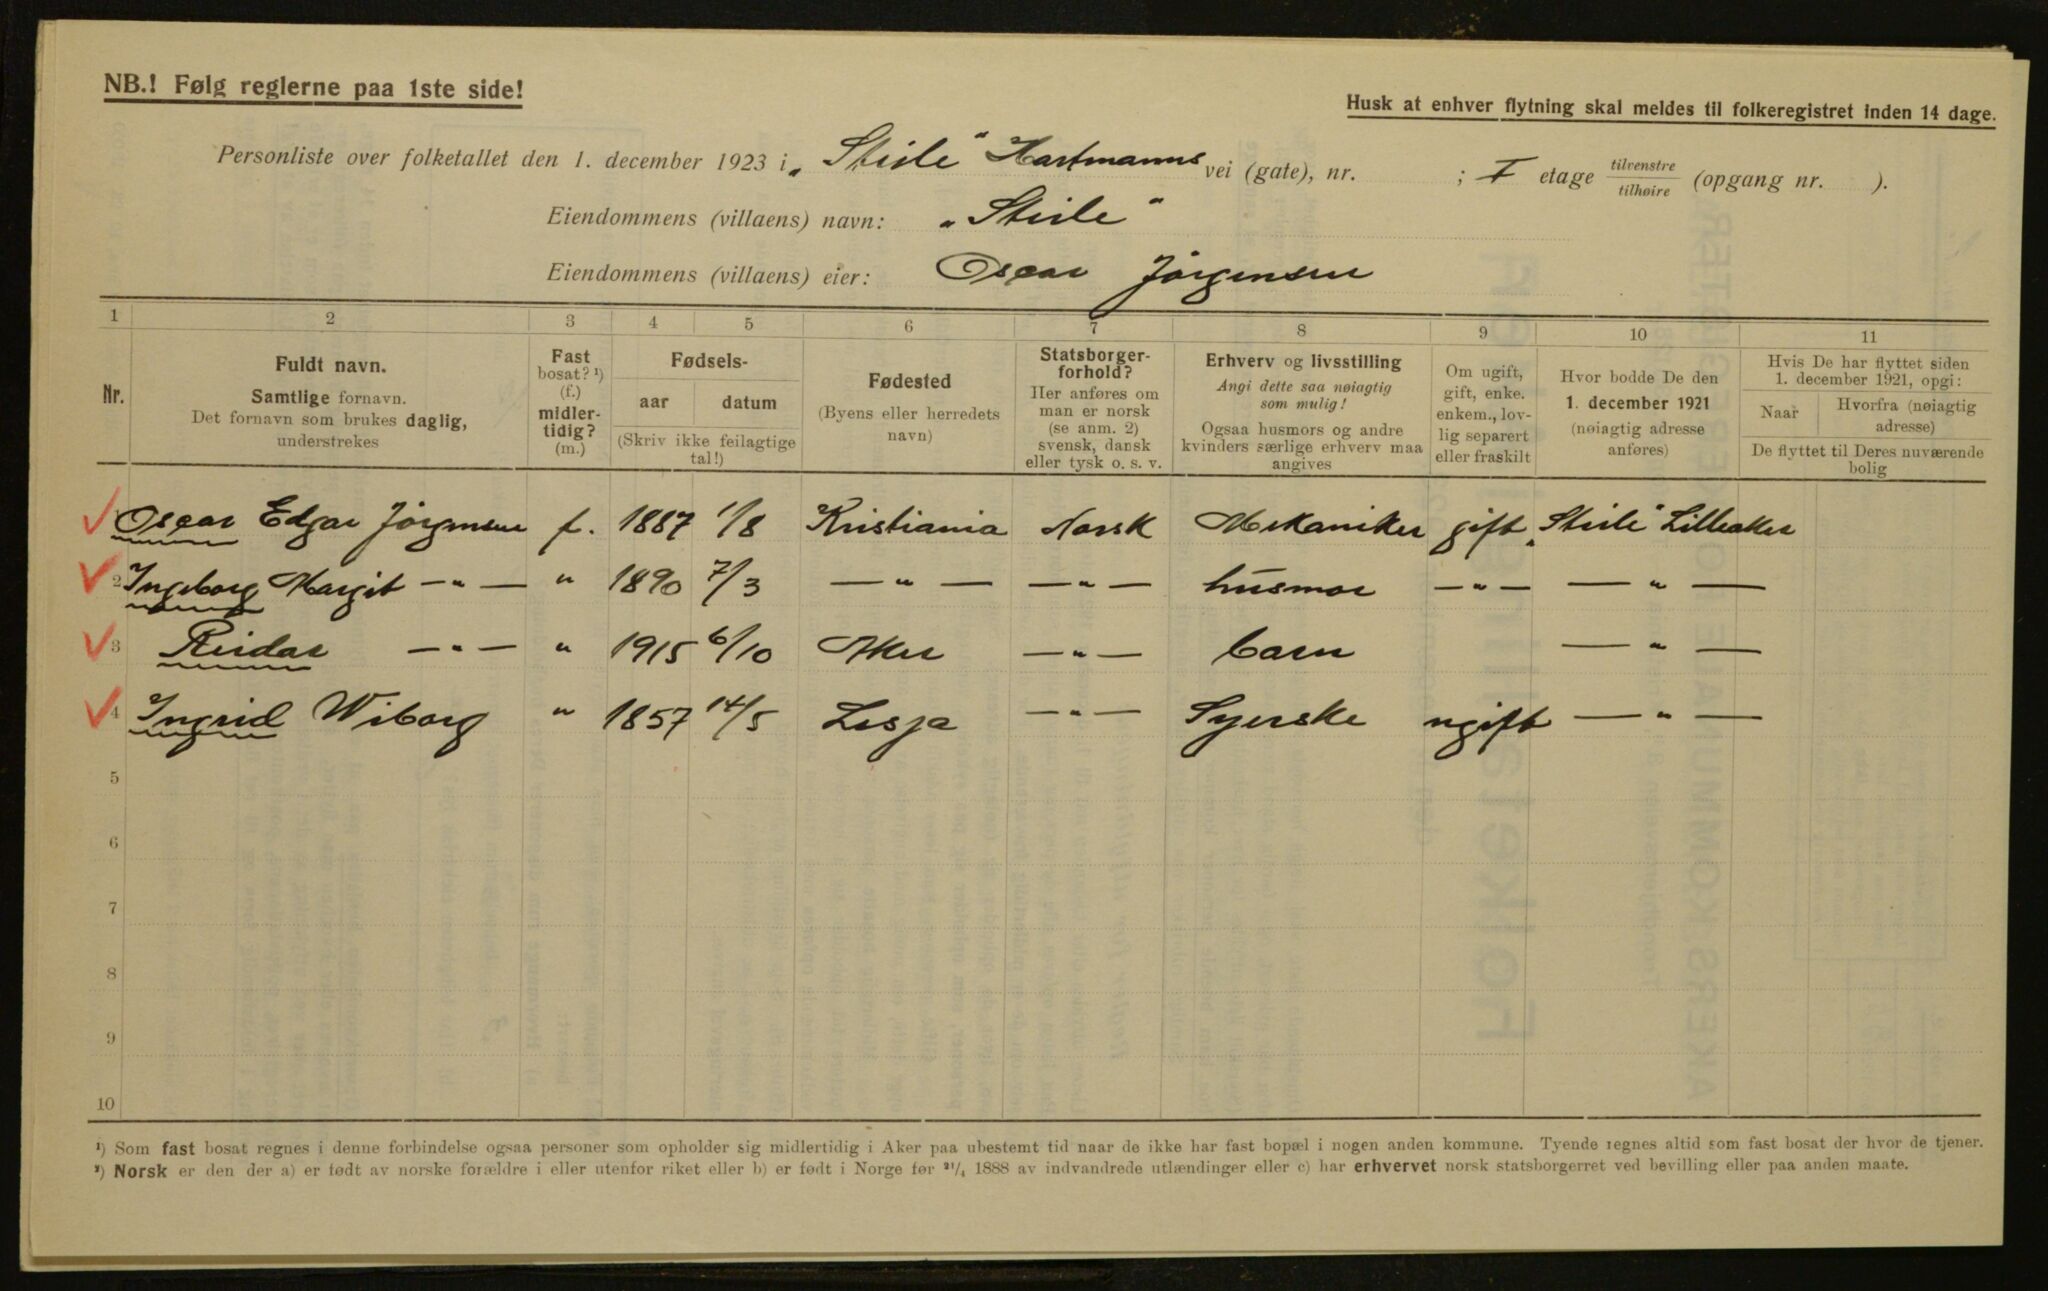 NB.! Følg reglerne paa 1ste side!
Husk at enhver flytning skal meldes til folkeregistret inden 14 dage.
Personliste over folketallet den 1. december 1923 i „Stirle“ Hartmanns vei (gate), nr. ; I etage tilvenstre tilhøire (opgang nr. ).
Eiendommens (villaens) navn: „Stirle“
Eiendommens (villaens) eier: Oscar Jørgensen
1 2 3 4 5 6 7 8 9 10 11
Nr.
Fuldt navn.
Samtlige fornavn.
Det fornavn som brukes daglig,
understrekes
Fast
bosat? ¹)
(f.)
midler-
tidig?
(m.)
Fødsels-
aar datum
(Skriv ikke feilagtige
tal!)
Fødested
(Byens eller herredets
navn)
Statsborger-
forhold?
Her anføres om
man er norsk
(se anm. 2)
svensk, dansk
eller tysk o. s. v.
Erhverv og livsstilling
Angi dette saa nøiagtig
som mulig!
Ogsaa husmors og andre
kvinders særlige erhverv maa
angives
Om ugift,
gift, enke.
enkem., lov-
lig separert
eller fraskilt
Hvor bodde De den
1. december 1921
(nøiagtig adresse
anføres)
Hvis De har flyttet siden
1. december 1921, opgi:
Naar Hvorfra (nøiagtig
adresse)
De flyttet til Deres nuværende
bolig
Oscar Edgar Jørgensen f. 1887 1/8 Kristiania Norsk Mekaniker gift „Stirle“ Lilleaker
2 Ingeborg Margit —„— „ 1890 7/3 —„— —„— husmor —„— —„—
3 Reidar —„— „ 1915 6/10 Aker —„— barn —„—
4 Ingrid Wiborg „ 1857 14/5 Lesja —„— Syerske ugift —„—
5
6
7
8
9
10
¹) Som fast bosat regnes i denne forbindelse ogsaa personer som opholder sig midlertidig i Aker paa ubestemt tid naar de ikke har fast bopæl i nogen anden kommune. Tyende regnes altid som fast bosat der hvor de tjener.
²) Norsk er den der a) er født av norske forældre i eller utenfor riket eller b) er født i Norge før ²¹/₄ 1888 av indvandrede utlændinger eller c) har erhvervet norsk statsborgerret ved bevilling eller paa anden maate.